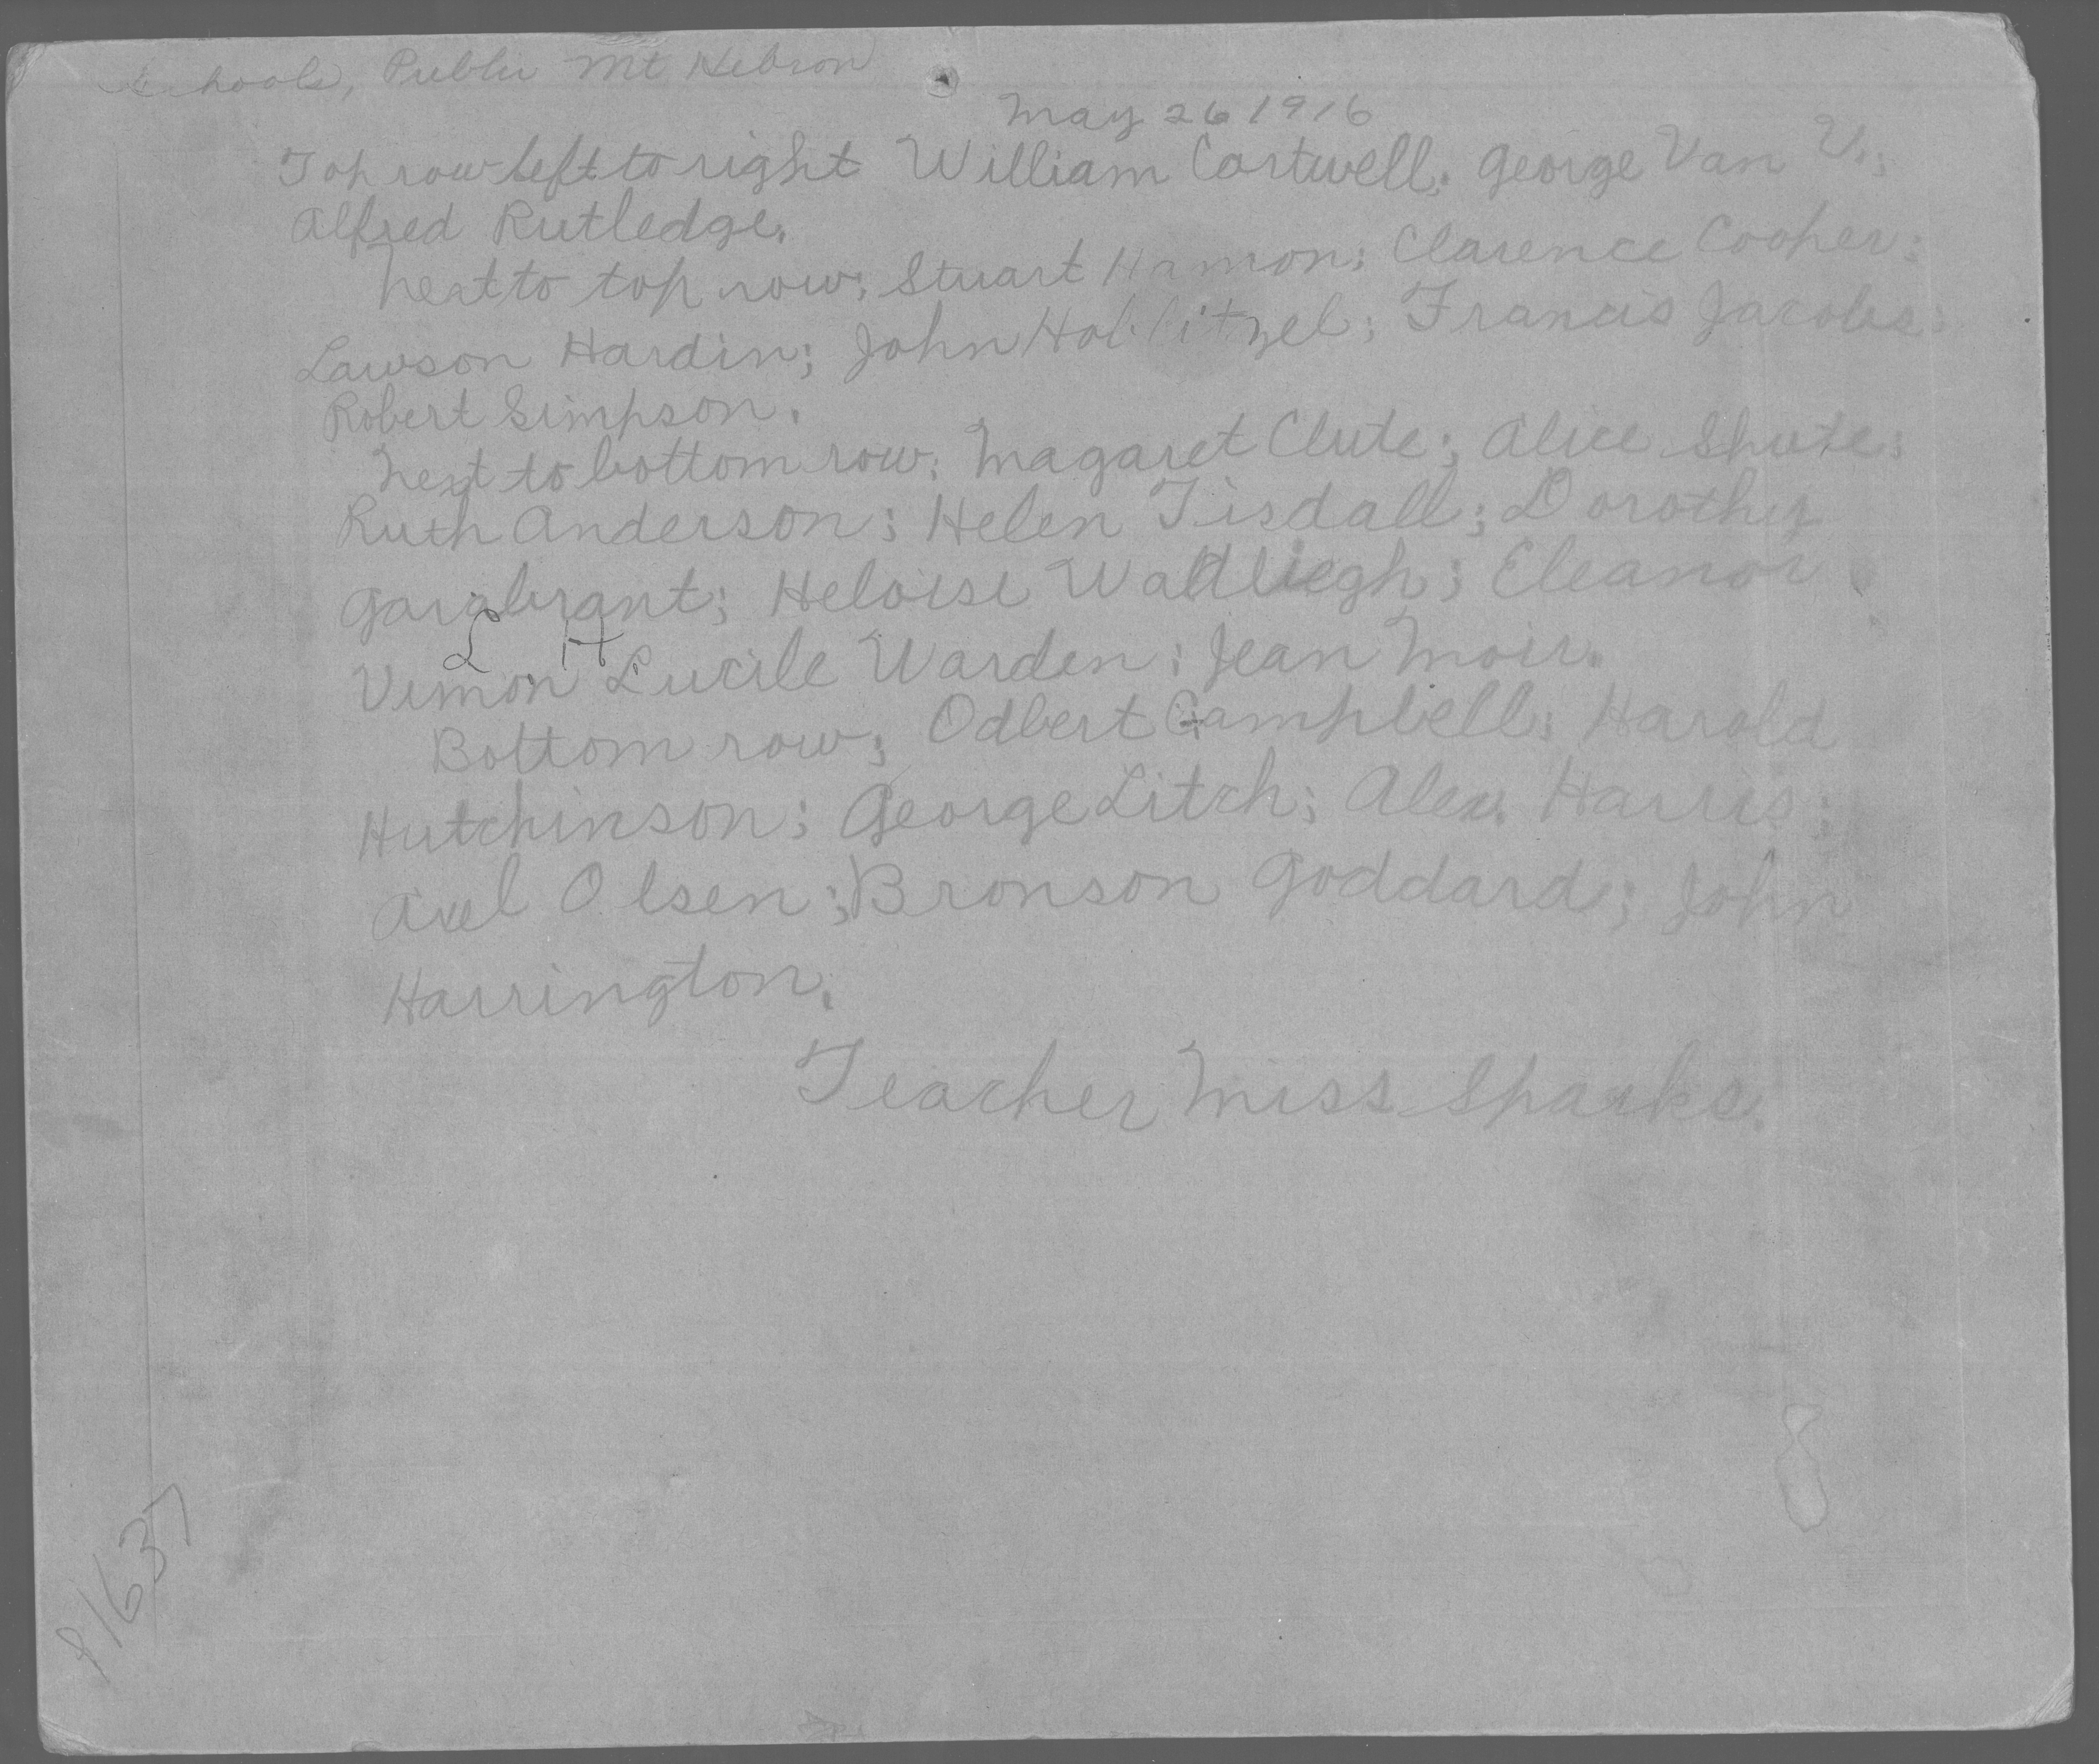 Schools, Public Mt Hebron
May 26 1916
Top row left to right William Cortwell; George Van V.;
Alfred Rutledge.
Next to top row; Stuart Hamon; Clarence Cooper;
Lawson Hardin; John Hoblitzel; Francis Jacobs;
Robert Simpson.
Next to bottom row; Magaret Clute; Alice Shute;
Ruth Anderson; Helen Tisdall; Dorothy
Garabrant; Heloise Wadliegh; Eleanor
L H
Vernon Lucile Warden; Jean Moir.
Bottom row; Odbert Campbell; Harold
Hutchinson; George Litch; Alex. Harris;
Axel Olsen; Bronson Goddard; John
Harrington.
Teacher Miss Sparks.
P1637